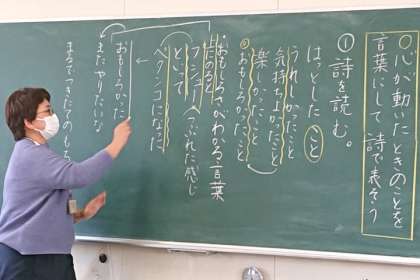 ◎心が動いたときのことを
言葉にして詩で表そう
①詩を読む。
はっとしたこと
うれしかったこと
気持ちよかったこと
楽しかったこと
おもしろかったこと
おもしろさがわかる言葉
のると
フシュー(つぶれた感じ
といって
ペタンコになった
おもしろかった
またやりたいな
まるでつきたてのもち